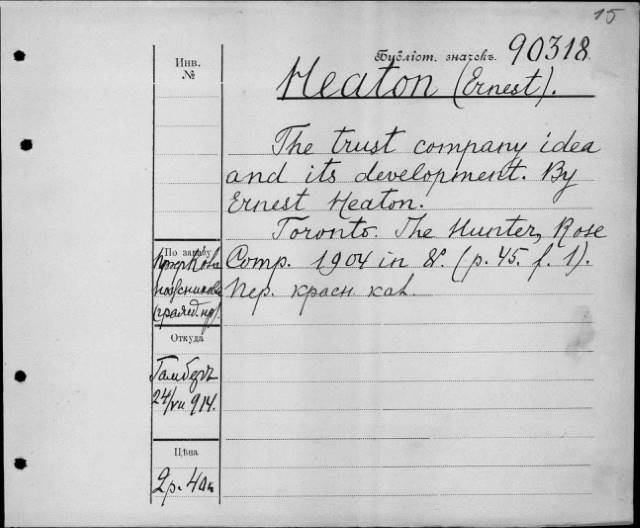 15
Инв.
№
Библіот. значекъ. 90318.
Heaton (Ernest).
The trust company idea
and its development. By
Ernest Heaton.
Toronto. The Hunter, Rose
Comp. 1904 in 8°. (p. 45. f. 1).
Пер. красн. кал.
По заказу
Откуда
24/VII 914.
Цѣна
2р. 40к